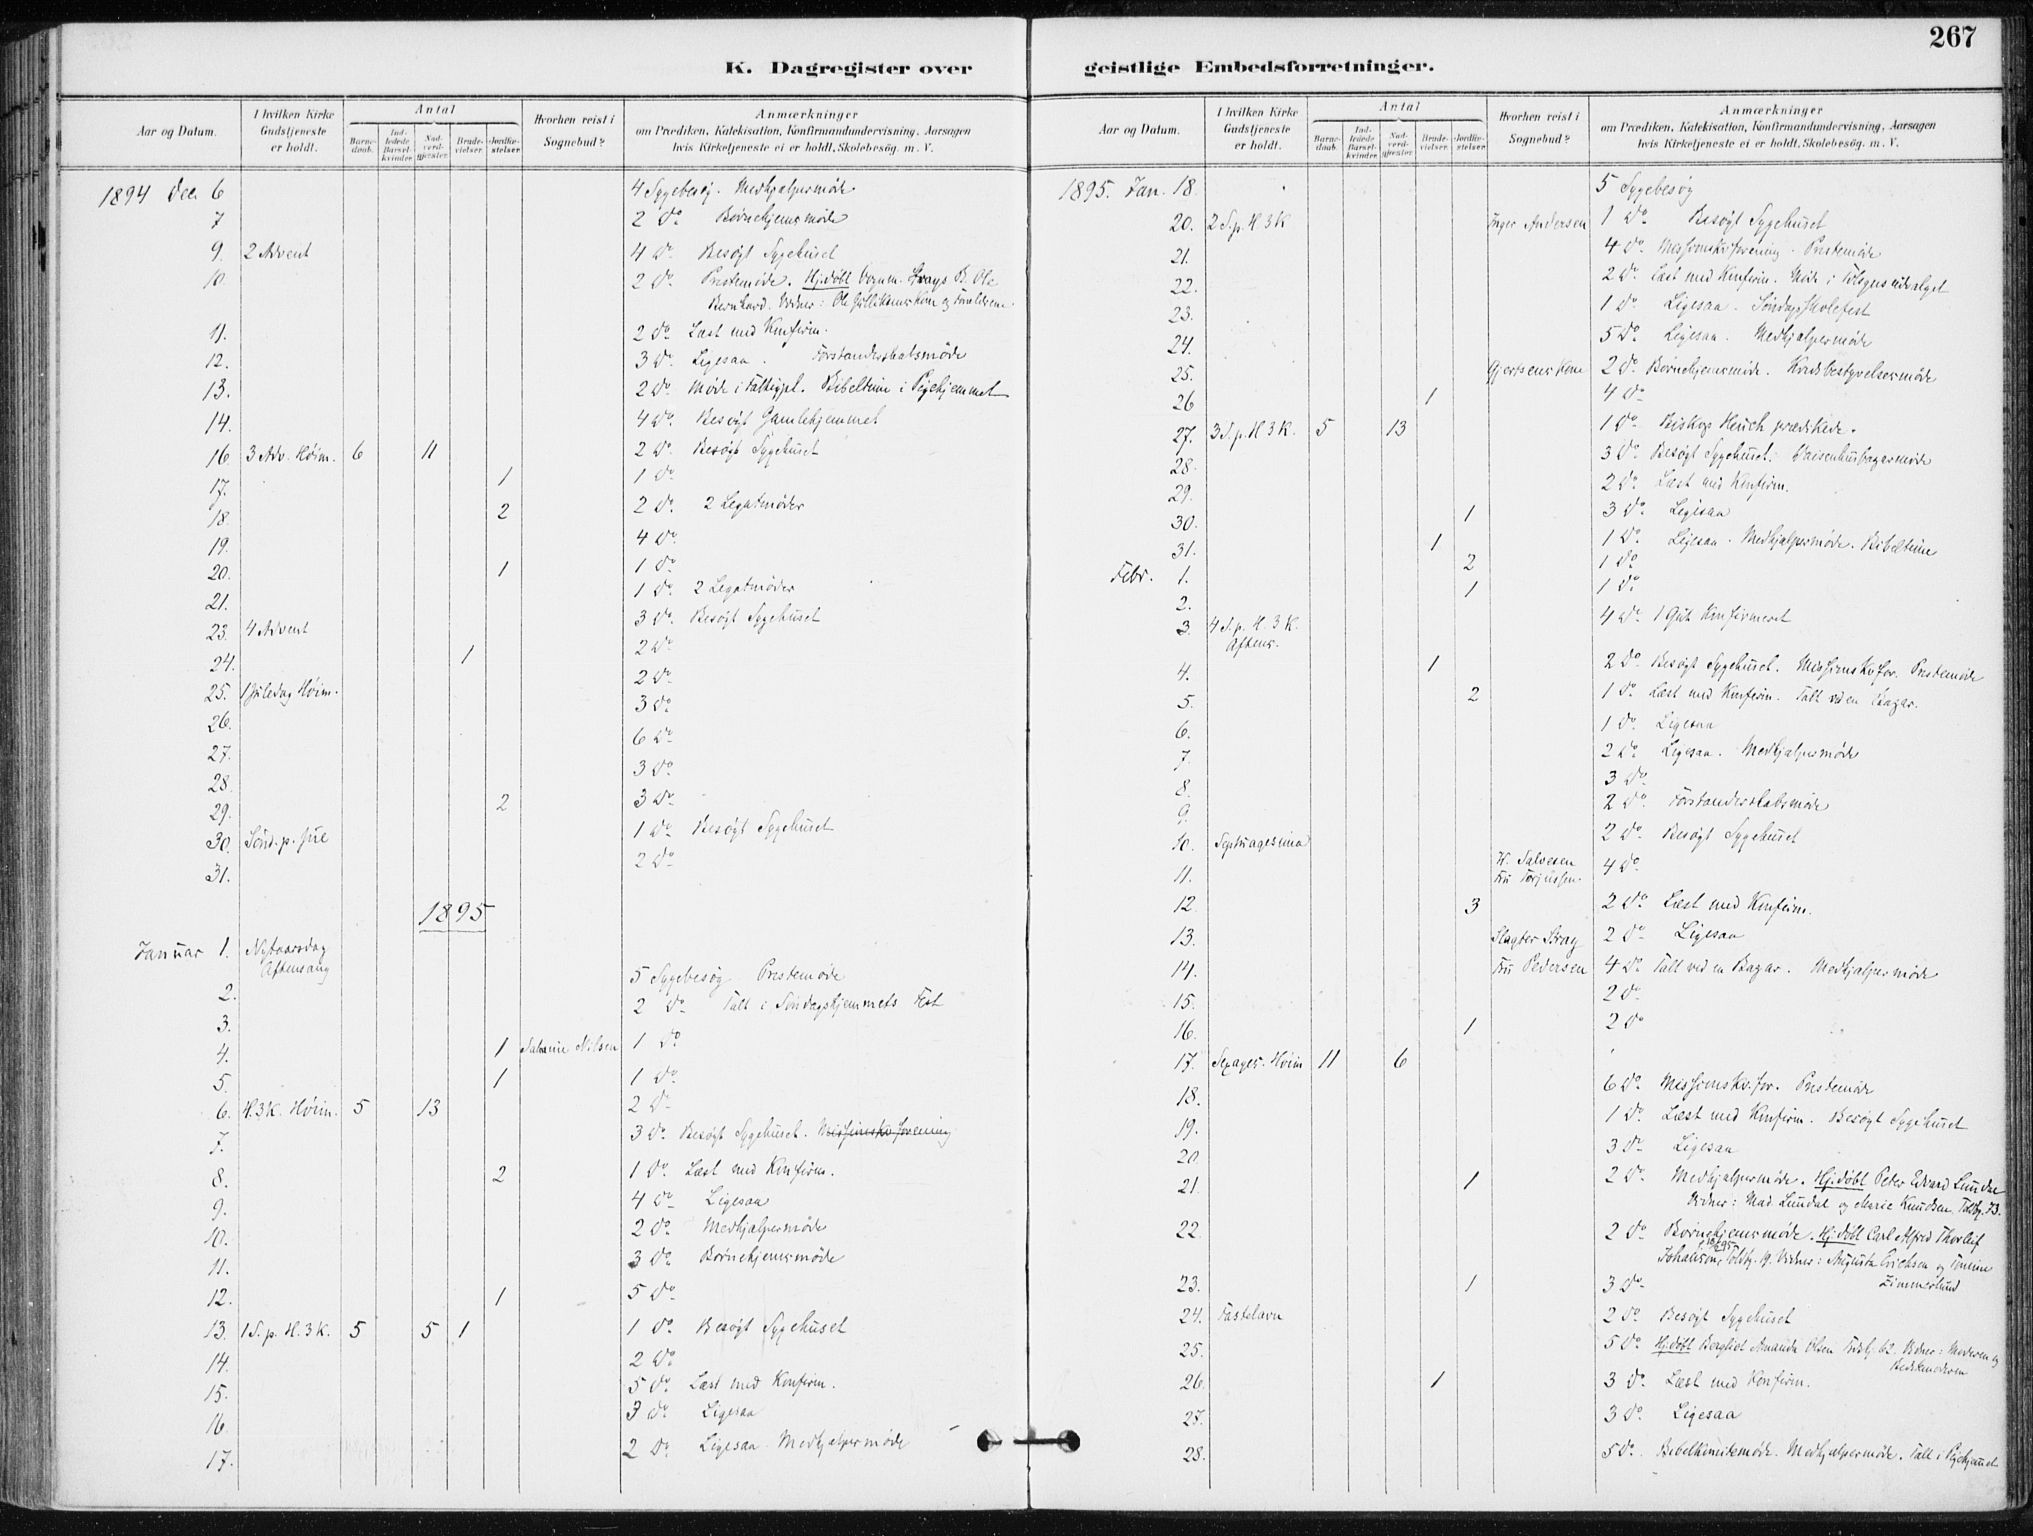 267
K. Dagregister over geistlige Embedsforretninger.
Aar og Datum. I hvilken Kirke Gudstjeneste er holdt. Antal Barnedaab. Indledede Barselkvinder Nadverdgjæster. Brudevielser. Jordfæstelser Hvorhen reist i Sognebud? Anmærkninger om Prædiken, Katekisation, Konfirmandundervisning, Aarsagen hvis Kirketjeneste ei er holdt, Skolebesög. m. V.
1894 Dec 6 4 Sygebesøg. Medhjælpermøde
7 2 Do Børnehjemsmøde
9. 2 Advent 4 Do Besøgt Sygehuset
10. 2 Do Prestemøde. Hj.døbt Ole
Bernhard. Vidner: Ole Kone og Forældrene.
11. 2 Do Læst med Konfirm.
12. 3 Do Ligesaa. Forstanderskabsmøde
13. 2 Do Møde i Fattigpl. Bibeltime i Pigehjemmet
14. 4 Do Besøgt Gamlehjemmet
16. 3 Adv. Høim. 6 11 2 Do Besøgt Sygehuset
17. 1 1 Do
18. 2 2 Do 2 Legatmøder
19. 4 Do
20. 1 1 Do
21. 1 Do 2 Legatmøder
23. 4 Advent 3 Do Besøgt Sygehuset
24. 1 2 Do
25. 1 Juledag Høim. 2 Do
26. 3 Do
27. 6 Do
28. 3 Do
29. 2 3 Do
30. Sønd. p. Jul 1 Do Besøgt Sygehuset
31. 2 Do
1895
Januar 1. Nytaarsdag
Aftensang
2. 5 Sygebesøg Prestemøde
3. 2 Do Talt i Søndagshjemmets Fest
4. 1 Nilsen 1 Do
5. 1 1 Do
6. H.3K. Høim. 5 13 2 Do
7. 3 Do Besøgt Sygehuset. Missionskv.forening
8. 2 1 Do Læst med Konfirm.
9. 4 Do Ligesaa
10. 2 Do Medhjælpermøde
11. 3 Do Børnehjemsmøde
12. 1 5 Do
13. 1 S. p. H. 3 K. 5 5 1 1 Do Besøgt Sygehuset
14. 2 Do
15. 5 Do Læst med Konfirm.
16. 3 Do Ligesaa
17. 2 Do Ligesaa. Medhjælpermøde
Aar og Datum. I hvilken Kirke Gudstjeneste er holdt. Antal Barnedaab. Indledede Barselkvinder Nadverdgjæster Brudevielser. Jordfæstelser Hvorhen reist i Sognebud? Anmærkninger om Prædiken, Katekisation, Konfirmandundervisning, Aarsagen hvis Kirketjeneste ei er holdt, Skolebesög. m. V.
1895. Jan. 18. 5 Sygebesøg
20. 2 S. p. H 3 K Inger Andersen 1 Do Besøgt Sygehuset
21. 4 Do Missionskv.forening. Prestemøde
22. 2 Do Læst med Konfirm. Møde i Tilsynsudvalget
23. 1 Do Ligesaa. Søndagsskolefest
24. 5 Do Ligesaa. Medhjælpermøde
25. Gjertsens Kone 2 Do Børnehjemsmøde. Kredsbestyrelsesmøde
26 1 4 Do
27. 3 S. p. H 3 K. 5 13 1 Do Biskop Heuch prædikede.
28. 3 Do Besøgt Sygehuset. Vaisenhusbazarmøde
29. 2 Do Læst med Konfirm.
30. 1 3 Do Ligesaa
31. 1 1 Do Ligesaa. Medhjælpermøde. Bibeltime
Febr. 1. 2 1 Do
2. 1 1 Do
3. 4 S. p. H. 3 K. 4 Do 1 Gut Konfirmeret
Aftens.
4. 1 2 Do Besøgt Sygehuset. Missionskv.for. Prestemøde
5. 2 1 Do Læst med Konfirm. Talt ved en Bazar.
6. 1 Do Ligesaa
7. 2 Do Ligesaa. Medhjælpermøde
8. 3 Do
9. 2 Do Forstanderskabsmøde
10. Septuagesima 2 Do Besøgt Sygehuset
11. W. Salvesen 4 Do
Fru Torjussen.
12. 3 2 Do Læst med Konfirm.
13. Slagter Stray 2 Do Ligesaa
14. Fru Pedersen 4 Do Talt ved en Bazar. Medhjælpermøde
15. 2 Do
16. 1 2 Do
17. Sexages. Høim 11 6
18. 6 Do Missionskv.for. Prestemøde
19. 1 Do Læst med Konfirm. Besøgt Sygehuset
20 3 Do Ligesaa
21. 1 2 Do Medhjælpermøde. Hj.døbt Peter Edvard
Vidner: Mad. Lundal og Marie Knudsen Toldbg. 73.
22. 2 Do Børnehjemsmøde. Hj.døbt Carl Alfred Thorleif
Johansen, Toldbg. 19. Vidner: Augusta Erichsen og Tomine
23. 1 3 Do Zimmerlund
24. Fastelavn 2 Do Besøgt Sygehuset
25. 5 Do Hj.døbt Bergliot Amanda Olsen 62. Vidner: Moderen og
Bedstemoderen
26. 1 3 Do Læst med Konfirm.
27. 3 Do Ligesaa
28. 5 Do Medhjælpermøde. Talt i Pigehjemmet